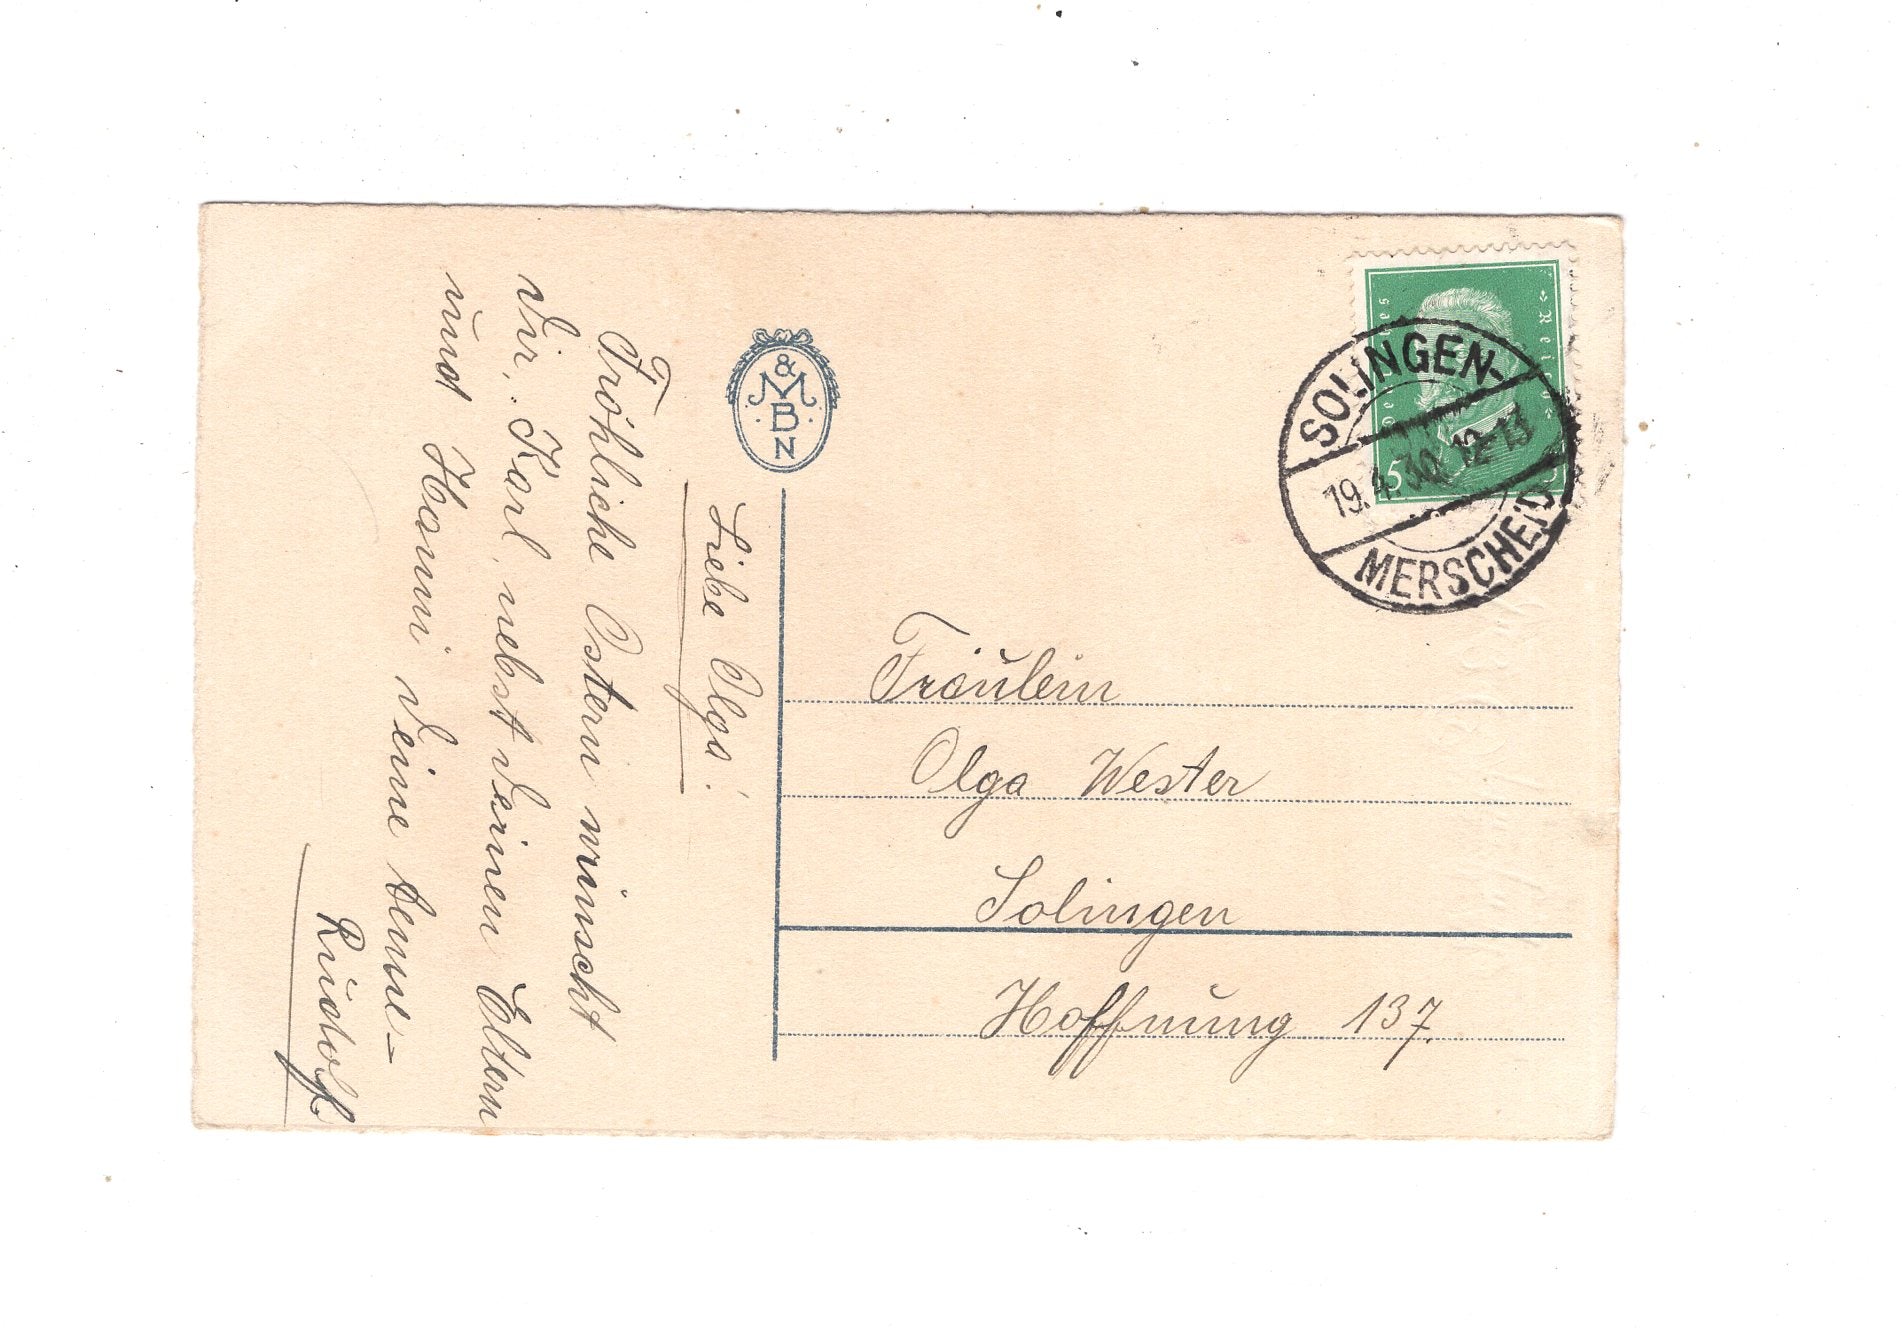 Liebe Olga!
Fröhliche Ostern wünscht
Dir, Karl, nebst Deinen Eltern
und Hanni Deine
Rudolf.
& M B N
Deutsches Reich
5
SOLINGEN-
19.4.30 12-13
MERSCHEID
Fräulein
Olga Wester
Solingen
Hoffnung 137.